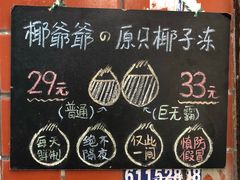 椰爺爺の原只椰子冻
29元 33元
(普通) (巨无霸)
每天鲜制 绝不隔夜 仅此一间 慎防假冒
61152838